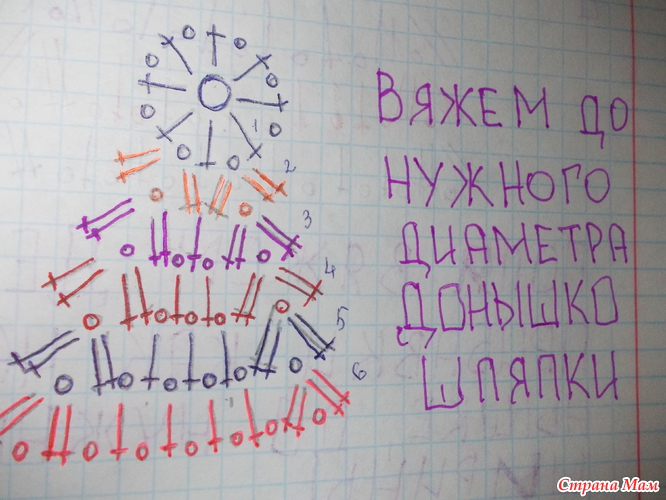 ВЯЖЕМ ДО
НУЖНОГО
ДИАМЕТРА
ДОНЫШКО
ШЛЯПКИ
1
2
3
4
5
6
Страна Мам